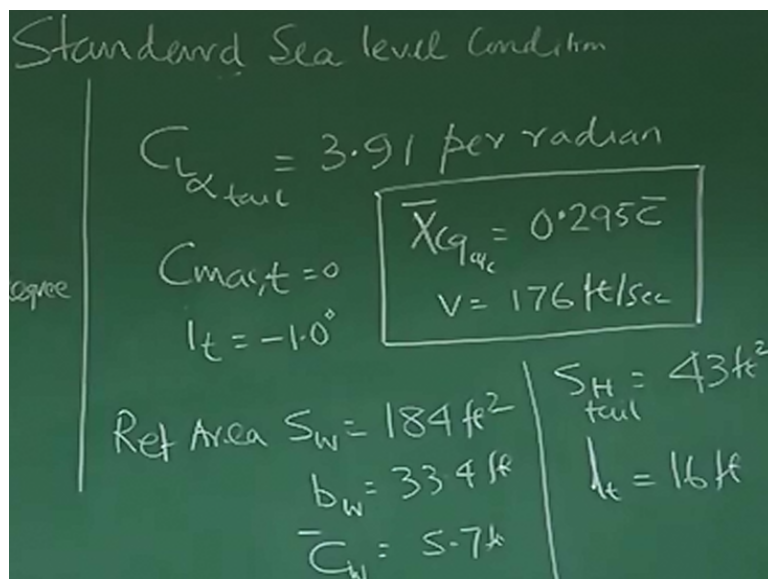 Standard Sea level Condition
C_Lα_tail = 3.91 per radian
egree
X̄cg_a/c = 0.295c̄
V = 176 ft/sec
Cmac,t = 0
i_t = -1.0°
Ref Area S_W = 184 ft²
b_W = 33.4 ft
C̄_W = 5.7 ft
S_H tail = 43 ft²
l_t = 16 ft